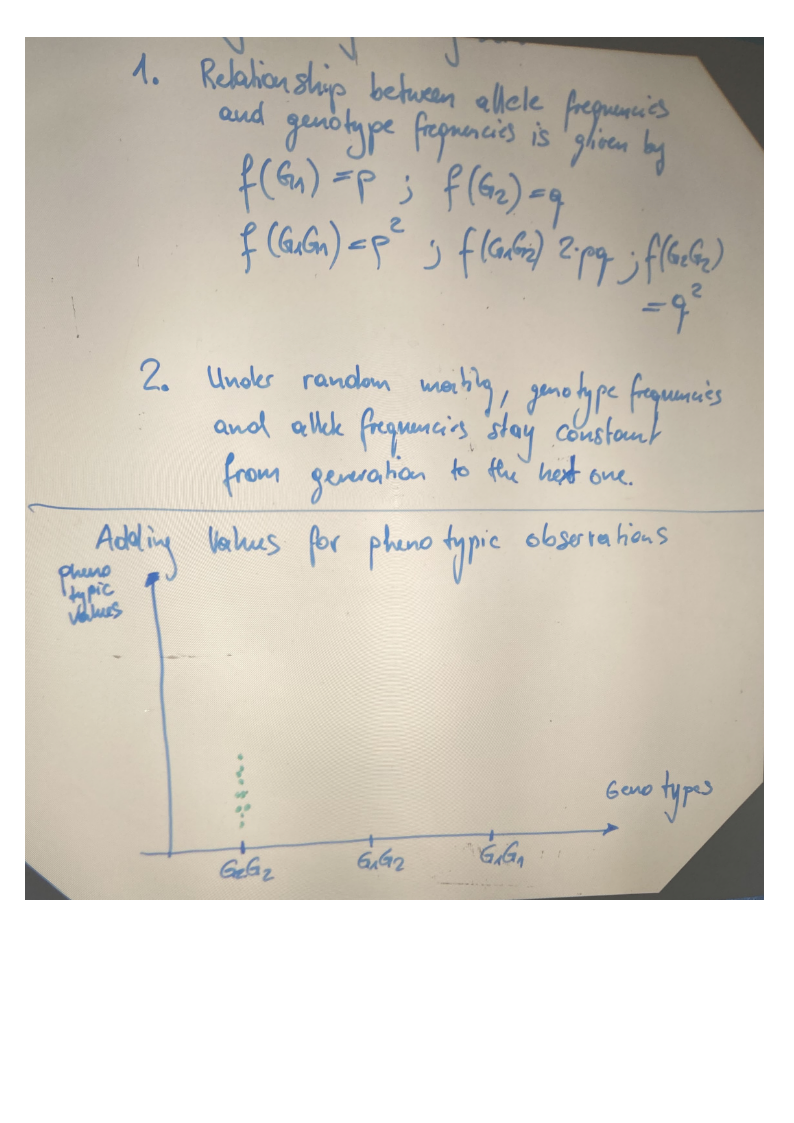 1. Relationship between allele frequencies
and genotype frequencies is given by
f(G₁) = p ; f(G₂) = q
f(G₁G₁) = p² ; f(G₁G₂) 2·pq ; f(G₂G₂)
= q²
2. Under random mating, genotype frequencies
and allele frequencies stay constant
from generation to the next one.
Adding Values for pheno typic observations
pheno
typic
Values
Geno types
G₂G₂ G₁G₂ G₁G₁